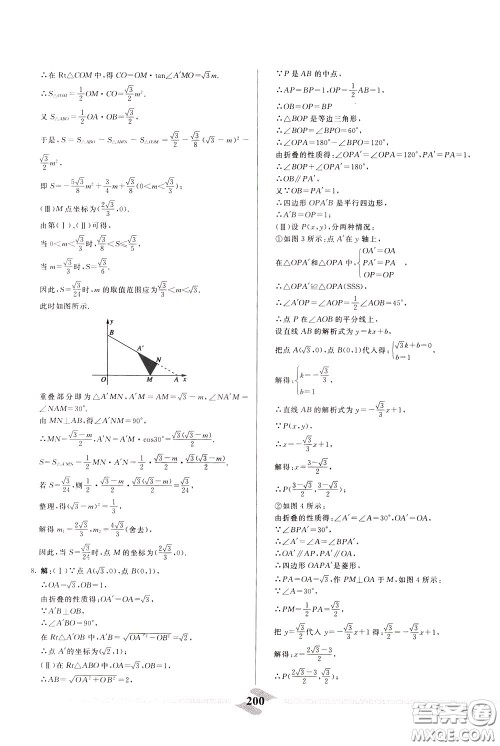 ∴在Rt△COM中,得CO=OM·tan∠A′MO=√3m.
∴S△COM=1/2OM·CO=√3/2m².
又S△ABO=1/2OA·OB=√3/2.
即S=-5√3/8m²+3/4m+√3/8(0<m<√3/3).
(Ⅲ)M点坐标为(2√3/3,0).
由第(Ⅰ),(Ⅱ)可得,
当0<m<√3/3时,√3/8<S≤√3/5,
当m=√3/3时,S=√3/6.
因此,S=√3/24时,m的取值范围应为√3/3<m<√3.
此时如图所示.
y
B
A′
N
O
M
A
x
重叠部分即为△A′MN,A′M=AM=√3-m,∠NA′M=
∠NAM=30°.
由MN⊥AB,得∠A′NM=90°.
∴MN=(√3-m)/2,A′N=A′M·cos30°=√3(√3-m)/2.
S=S△A′MN=1/2MN·A′N=1/2·(√3-m)/2·√3(√3-m)/2.
若S=√3/24,则1/2·(√3-m)/2·√3(√3-m)/2=√3/24.
整理,得(√3-m)²=1/3.
解得m₁=2√3/3,m₂=4√3/3(舍去).
因此,当S=√3/24时,点M的坐标为(2√3/3,0).
8.解:(Ⅰ)∵点A(√3,0),点B(0,1),
∴OA=√3,OB=1,
由折叠的性质得:OA′=OA=√3,
∵A′B⊥OB,
∴∠A′BO=90°,
在Rt△A′OB中,A′B=√(OA′²-OB²)=√2,
∴点A′的坐标为(√2,1);
(Ⅱ)在Rt△ABO中,OA=√3,OB=1,
∴AB=√(OA²+OB²)=2,
∵P是AB的中点,
∴AP=BP=1,OP=1/2AB=1,
∴OB=OP=BP
∴△BOP是等边三角形,
∴∠BOP=∠BPO=60°,
∴∠OPA=180°-∠BPO=120°,
由折叠的性质得:∠OPA′=∠OPA=120°,PA′=PA=1,
∴∠BOP+∠OPA′=180°,
∴OB∥PA′,
又∵OB=PA′=1,
∴四边形OPA′B是平行四边形,
(Ⅲ)设P(x,y),分两种情况:
①如图3所示:点A′在y轴上,
在△OPA′和△OPA中,{OA′=OA PA′=PA OP=OP
∴△OPA′≌△OPA(SSS),
∴∠A′OP=∠AOP=1/2∠AOB=45°,
∴点P在∠AOB的平分线上,
设直线AB的解析式为y=kx+b,
把点A(√3,0),点B(0,1)代入得:{√3k+b=0 b=1,
解得:{k=-√3/3 b=1,
∴直线AB的解析式为y=-√3/3x+1,
∵P(x,y),
∴x=-√3/3x+1,
解得:x=(3-√3)/2,
∴P((3-√3)/2,(3-√3)/2);
②如图4所示:
由折叠的性质得:∠A′=∠A=30°,OA′=OA,
∵∠BPA′=30°,∴∠A′=∠A=∠BPA′,
∴OA′∥AP,PA′∥OA,
∴四边形OAPA′是菱形,
∴PA=OA=√3,作PM⊥OA于M,如图4所示:
∵∠A=30°,
∴PM=1/2PA=√3/2,
把y=√3/2代入y=-√3/3x+1得:√3/2=-√3/3x+1,
解得:x=(2√3-3)/2,
∴P((2√3-3)/2,√3/2);
200